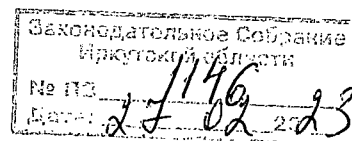 Законодательное Собрание
Иркутской области
№ ПЗ 1146
Дата: 27 02 2023